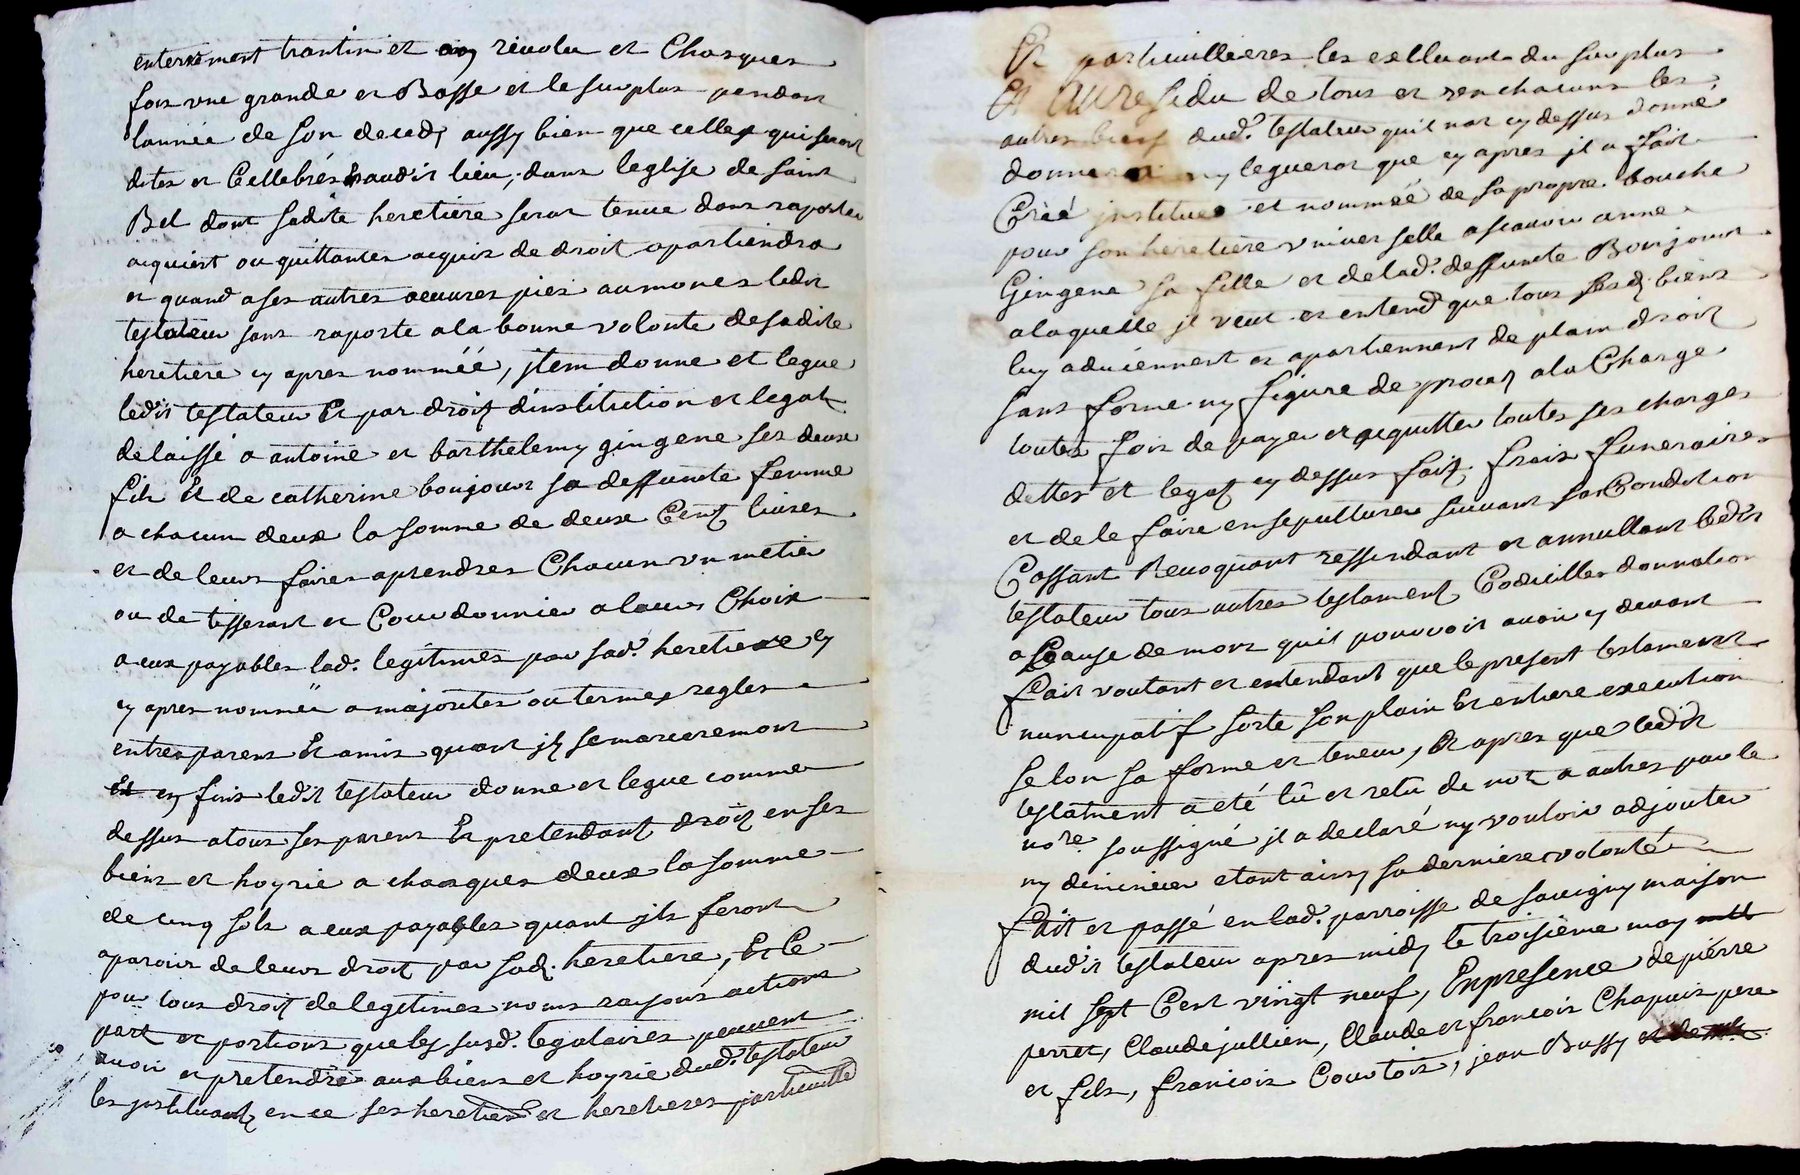 enterrement trantin et anq révolu et Chasques
fois une grande et Basse et le surplus pendant
lannée de son deceds aussy bien que celles qui seront
dites et Cellebrés audit lieu, dans leglise de saint
Bel dont sadite heretiere serat tenue dans raporter
acquiest ou quittances acquis de droit apartiendra
et quand a ses autres oeuures pies aumones ledit
testateur sans raporte a la bonne volonté de sadite
heretiere cy apres nommée, jtem donne et legue
ledit testateur Et par droit d'institution et legat
delaissé a antoine et barthelemy gingene ses deux
fils Et de catherine boujour sa deffuncte femme
a chacun deux la somme de deux Cent livres
et de leurs faires aprendres Chacun un metier
ou de tisserant et Courdonnier a leurs Choix
a eux payables lad. legitimes par sad. heretiere
cy apres nommée a majorités ou termes regles
entres parens Et amis quant jls se marieremont
en fins ledit testateur donne et legue comme
dessus a tous ses parens Et pretendant droit en ses
biens et hoyrie a chasques deux la somme
de cinq sols a eux payables quant jls feront
aparoir de leurs droit par sad. heretiere, Et Ce
pour tous droit de legitimes noms raisons actions
part et portions que les susd. legataires peuvent
avoir et pretendre aux biens et hoyrie dud. testateur
les jnstituant en ce ses heretiers et heretieres particuille
Et particuillieres les excluant du surplus
Et Au residu de tous et un chacuns les
autres biens dud. testateur quil nat cy dessus donné
donnerat ny leguerat que cy apres jl a fait
Créé jnstitués et nommée de sa propre bouche
pour son heretiere universelle ascavoir anne
Gingene sa fille et de lad. deffuncte Bonjour
a laquelle jl veut et entend que tous sesd. biens
luy aduiennent et apartiennent de plain droit
sans forme ny figure de procez a la Charge
toutes fois de payer et acquitter toutes ses charges
dettes et legat cy dessus fait frais funeraires
et de le faire ensepulturer suivant sa Condition
Cassant Revoquant ressindant et annullant ledit
testateur tous autres testament Codicilles donnation
a Cause de mort quil pouvoir avoir cy devant
fait voulant et entendant que le present testament
nuncupatif sorte son plain Et entiere execution
selon sa forme et teneur, Et apres que ledit
testament a eté lû et relu de mot a autres par le
nore soussigné jl a declaré ny vouloir adjouter
ny diminuer etant ainsy sa derniere volonté
fait et passé en lad. parroisse de savigny maison
dudit testateur apres midy le troisième may
mil sept Cent vingt neuf, En presence de pierre
perret, Claude jullien, Claude et francois Chapuis pere
et fils, francois Courtois, jean Bussy